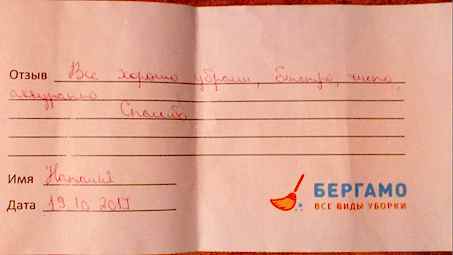 Отзыв Все хорошо убрали, быстро, чисто,
аккуратно
Спасибо.
Имя Наталья
Дата 19.10 2017
БЕРГАМО
ВСЕ ВИДЫ УБОРКИ